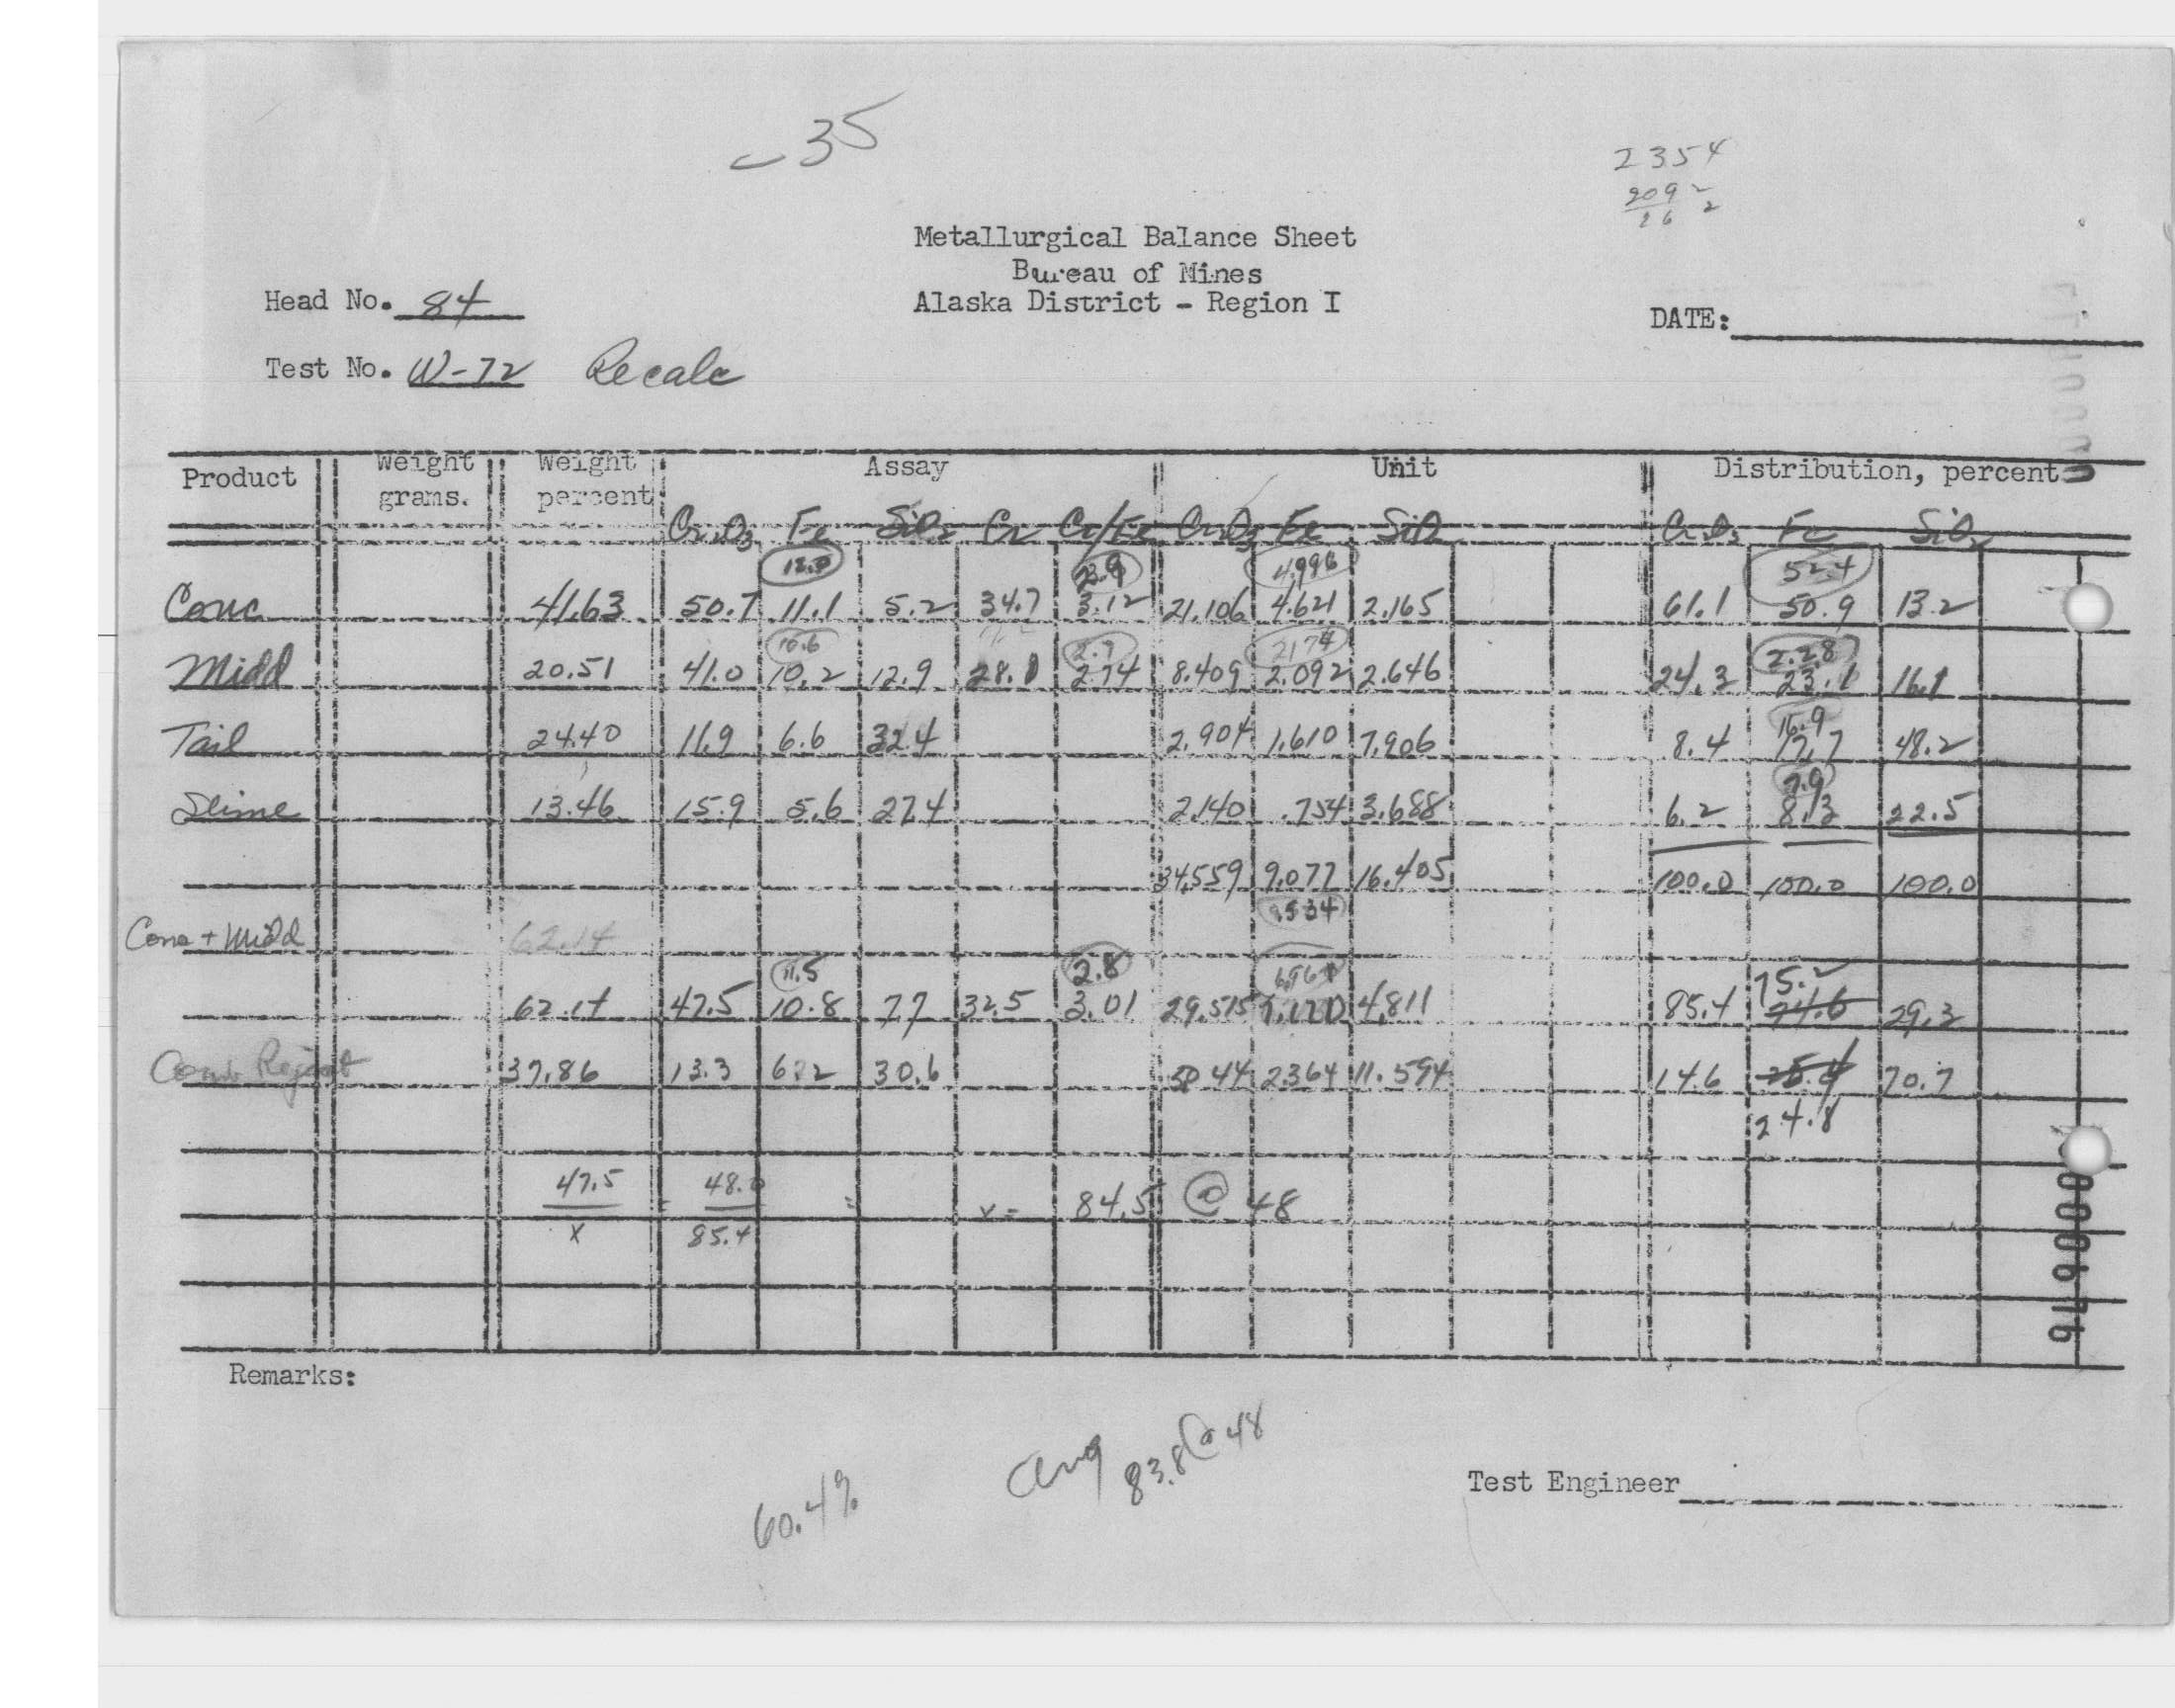 - 35
2354
2092
26 2
Metallurgical Balance Sheet
Bureau of Mines
Alaska District - Region I
Head No. 84
DATE:
Test No. W-72 Recalc
Product Weight grams. Weight percent Assay Unit Distribution, percent
Cr2O3 Fe SiO2 Cr Cr/Fe Cr2O3 Fe SiO2 Cr2O3 Fe SiO2
12.0 2.9 4.996 52.4
Conc 41.63 50.7 11.1 5.2 34.7 3.12 21.106 4.621 2.165 61.1 50.9 13.2
10.6 2.7 2174 22.8
Midd 20.51 41.0 10.2 12.9 28.1 2.74 8.409 2.092 2.646 24.3 23.1 16.1
16.9
Tail 24.40 11.9 6.6 32.4 2.904 1.610 7.906 8.4 17.7 48.2
7.9
Slime 13.46 15.9 5.6 27.4 2.140 .754 3.688 6.2 8.3 22.5
34.559 9.077 16.405 100.0 100.0 100.0
9.534
Conc + Midd 62.14
11.5 2.8 75.2
62.14 47.5 10.8 7.7 32.5 3.01 29.515 4.811 85.4 74.6 29.3
Comb Reject 37.86 13.3 6.2 30.6 5044 2.364 11.594 14.6 25.4 70.7
24.8
47.5 = 48.0 = x = 84.5 @ 48
x 85.4
0000676
Remarks:
60.4%
Avg 83.8 @ 48
Test Engineer